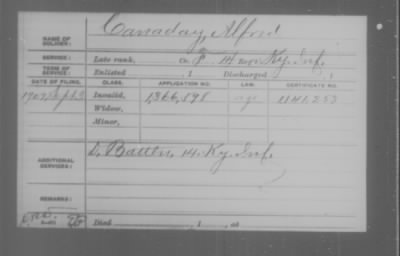 Canaday, Alfred
NAME OF SOLDIER:
SERVICE: Late rank, Co. F. 14 Reg't Ky. Inf.
TERM OF SERVICE: Enlisted , 1 Discharged , 1
DATE OF FILING. CLASS. APPLICATION NO. LAW. CERTIFICATE NO.
1907 Sept 3 Invalid, 1,366,598 1141.253
Widow,
Minor,
ADDITIONAL SERVICES: D, Batt'n, 14. Ky. Inf.
REMARKS:
Died , 1 , at